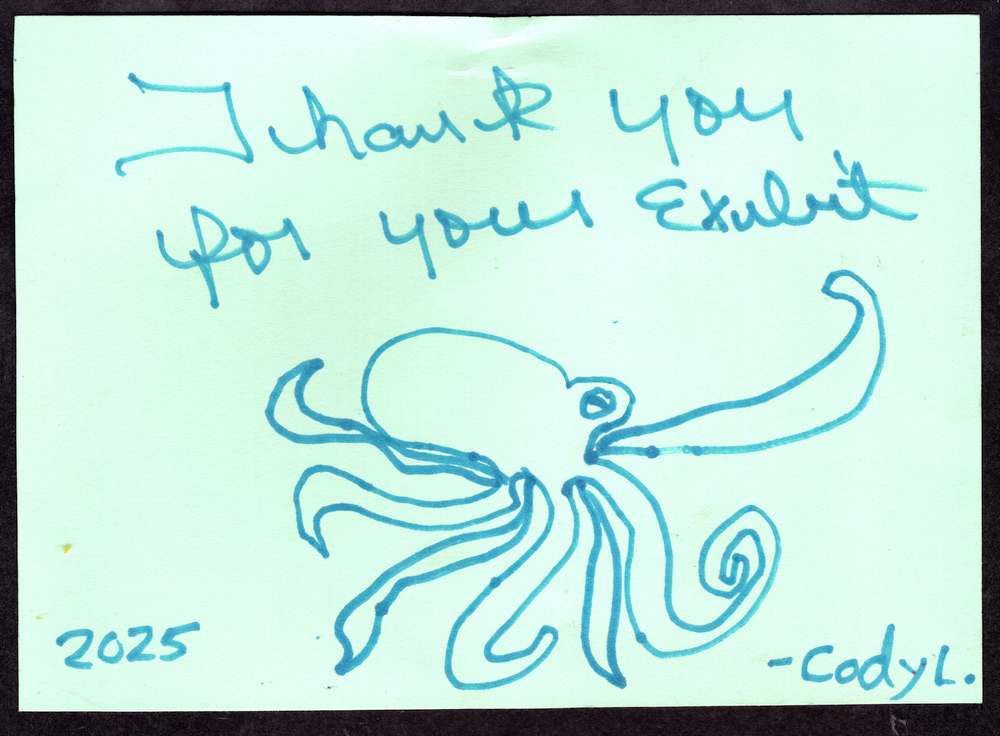 Thank you
for your Exhibit
2025
-Cody L.